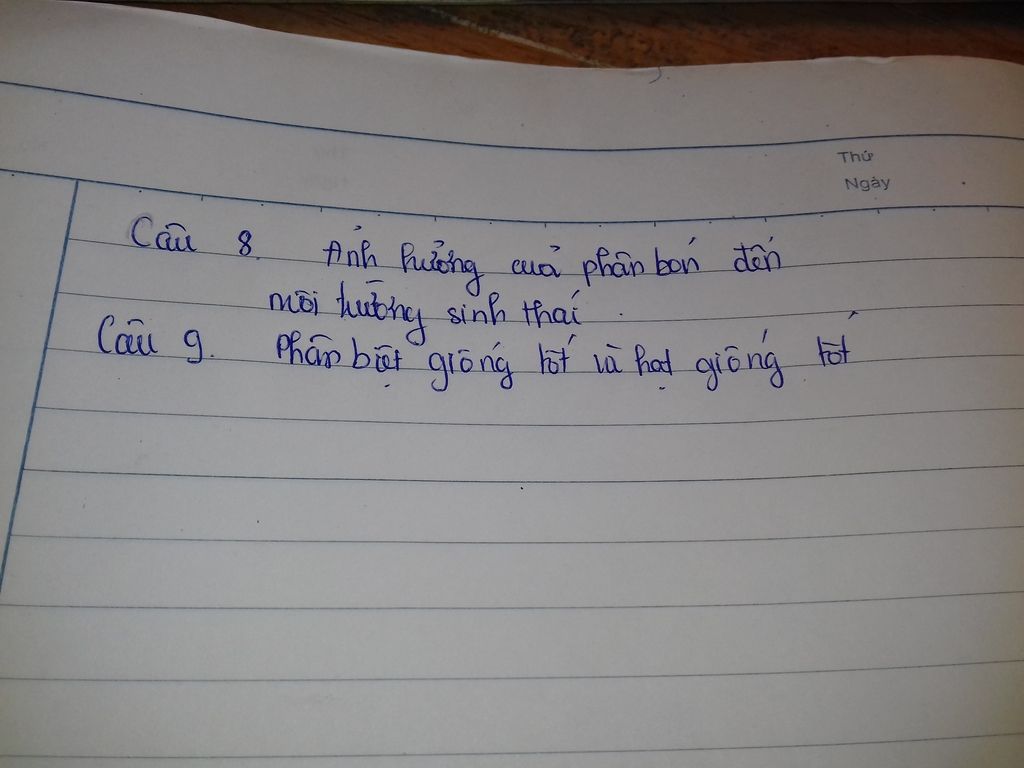 Thứ
Ngày
Câu 8. Ảnh hưởng của phân bón đến
môi trường sinh thái.
Câu 9. Phân biệt giống tốt và hạt giống tốt